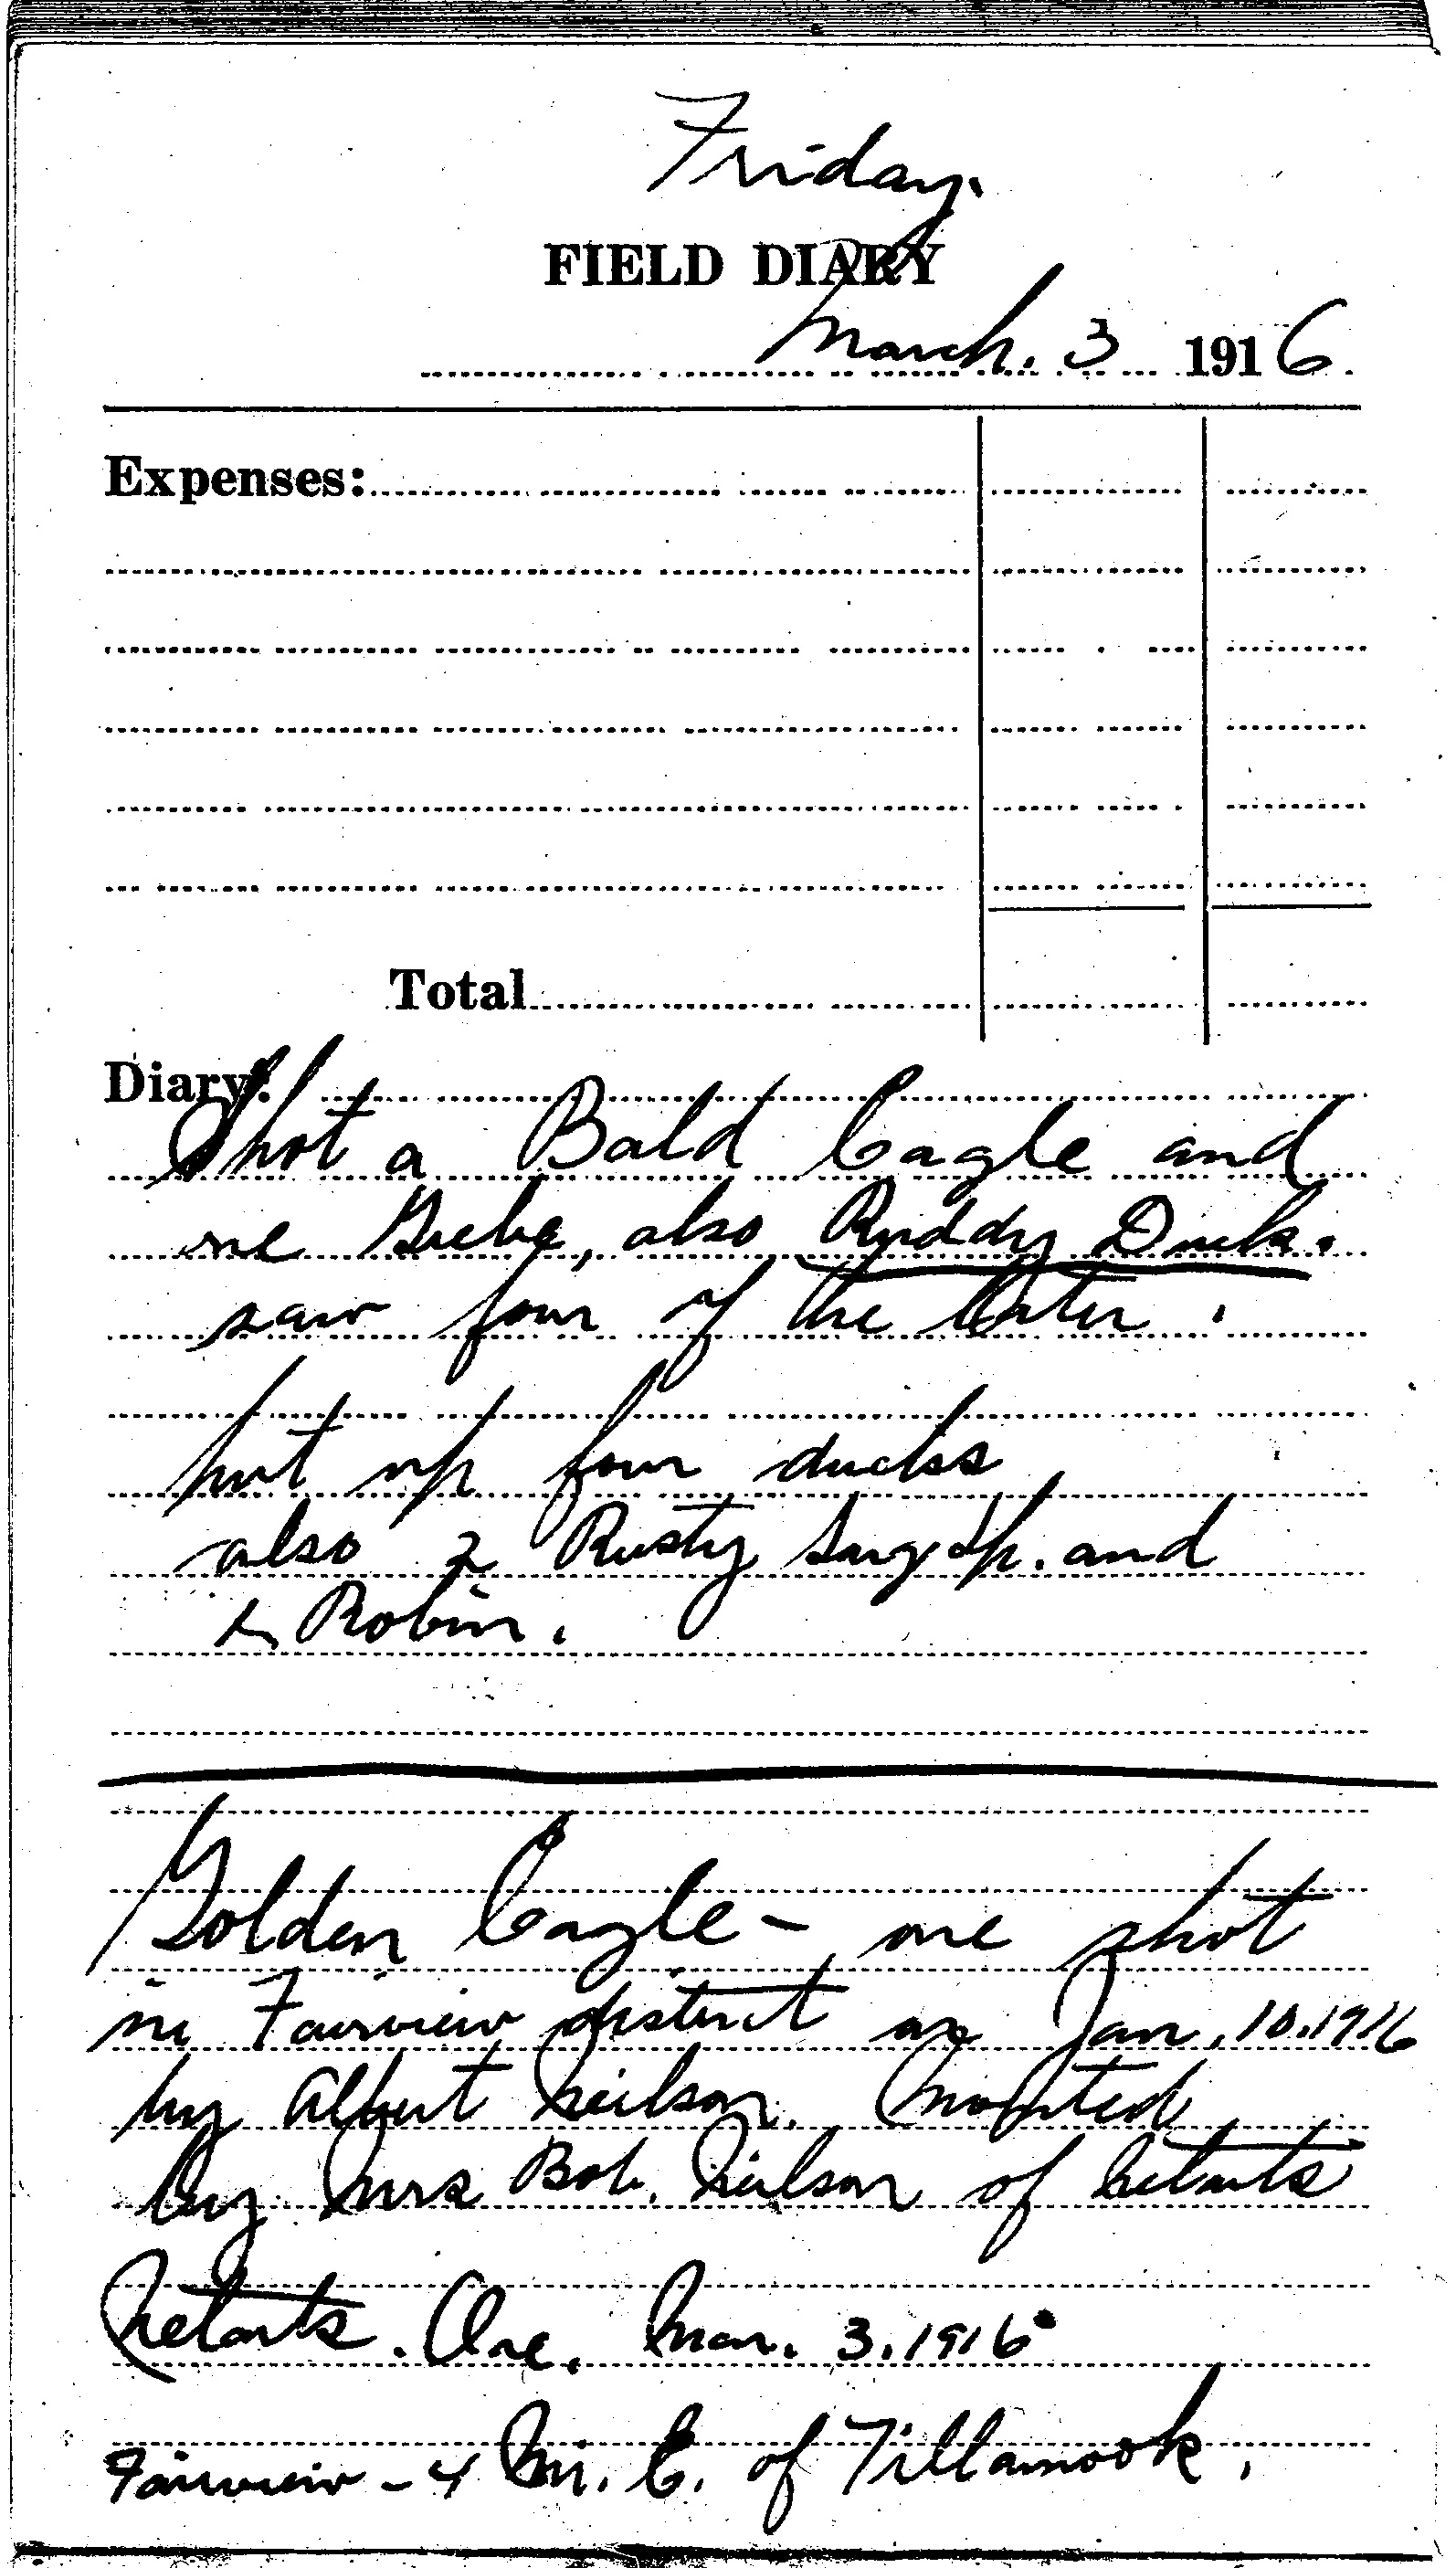 Friday.
FIELD DIARY
March. 3 1916
Expenses:
Total
Diary:
Shot a Bald Eagle and
one Grebe, also Ruddy Duck.
saw four of the later.
put up four ducks
also 2 Rusty Song Sp. and
Robin.
Golden Eagle - one shot
in Fairview district on Jan. 10. 1916
by Albert Neilson. Mounted
by Mrs Bob. Neilson of Netarts
Netarts. Ore. Mar. 3. 1916
Fairview - 4 Mi. E. of Tillamook.